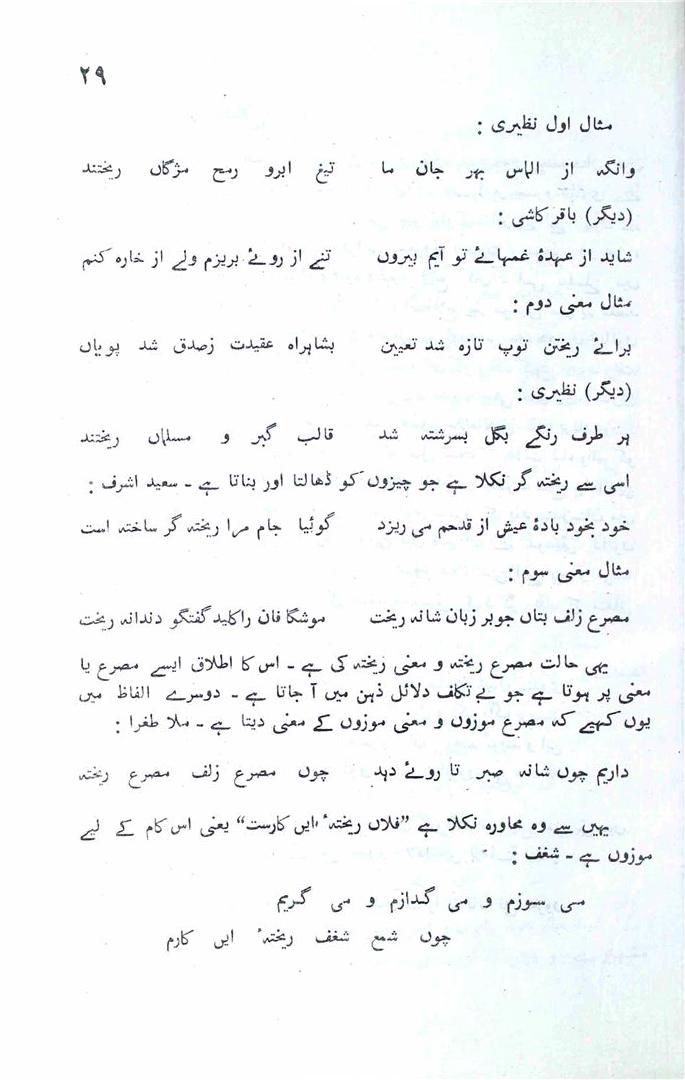 ۲۹
مثال اول نظیری :
وانگہ از الماس بہر جان ما تیغ ابرو رمح مژگاں ریختند
(دیگر) باقر کاشی :
شاید از عہدۂ غمہائے تو آیم بیروں تنے از روئے بریزم ولے از خارہ کنم
مثال معنی دوم :
برائے ریختن توپ تازہ شد تعیین بشاہراہ عقیدت زصدق شد پویاں
(دیگر) نظیری :
ہر طرف رنگے بگل بسرشتہ شد قالب گبر و مسلماں ریختند
اسی سے ریختہ گر نکلا ہے جو چیزوں کو ڈھالتا اور بناتا ہے ۔ سعید اشرف :
خود بخود بادۂ عیش از قدحم می ریزد گوئیا جام مرا ریختہ گر ساختہ است
مثال معنی سوم :
مصرع زلف بتاں جوہر زبان شانہ ریخت موشگافان راکلید گفتگو دندانہ ریخت
یہی حالت مصرع ریختہ و معنی ریختہ کی ہے ۔ اس کا اطلاق ایسے مصرع یا
معنی پر ہوتا ہے جو بے تکلف دلائل ذہن میں آ جاتا ہے ۔ دوسرے الفاظ میں
یوں کہیے کہ مصرع موزوں و معنی موزوں کے معنی دیتا ہے ۔ ملا طغرا :
داریم چوں شانہ صبر تا روئے دہد چوں مصرع زلف مصرع ریختہ
یہیں سے وہ محاورہ نکلا ہے ”فلاں ریختہٴ ایں کارست“ یعنی اس کام کے لیے
موزوں ہے ۔ شغف :
می سوزم و می گدازم و می گریم
چوں شمع شغف ریختہٴ ایں کارم